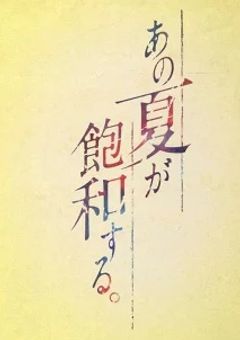 あの夏が
飽和する。